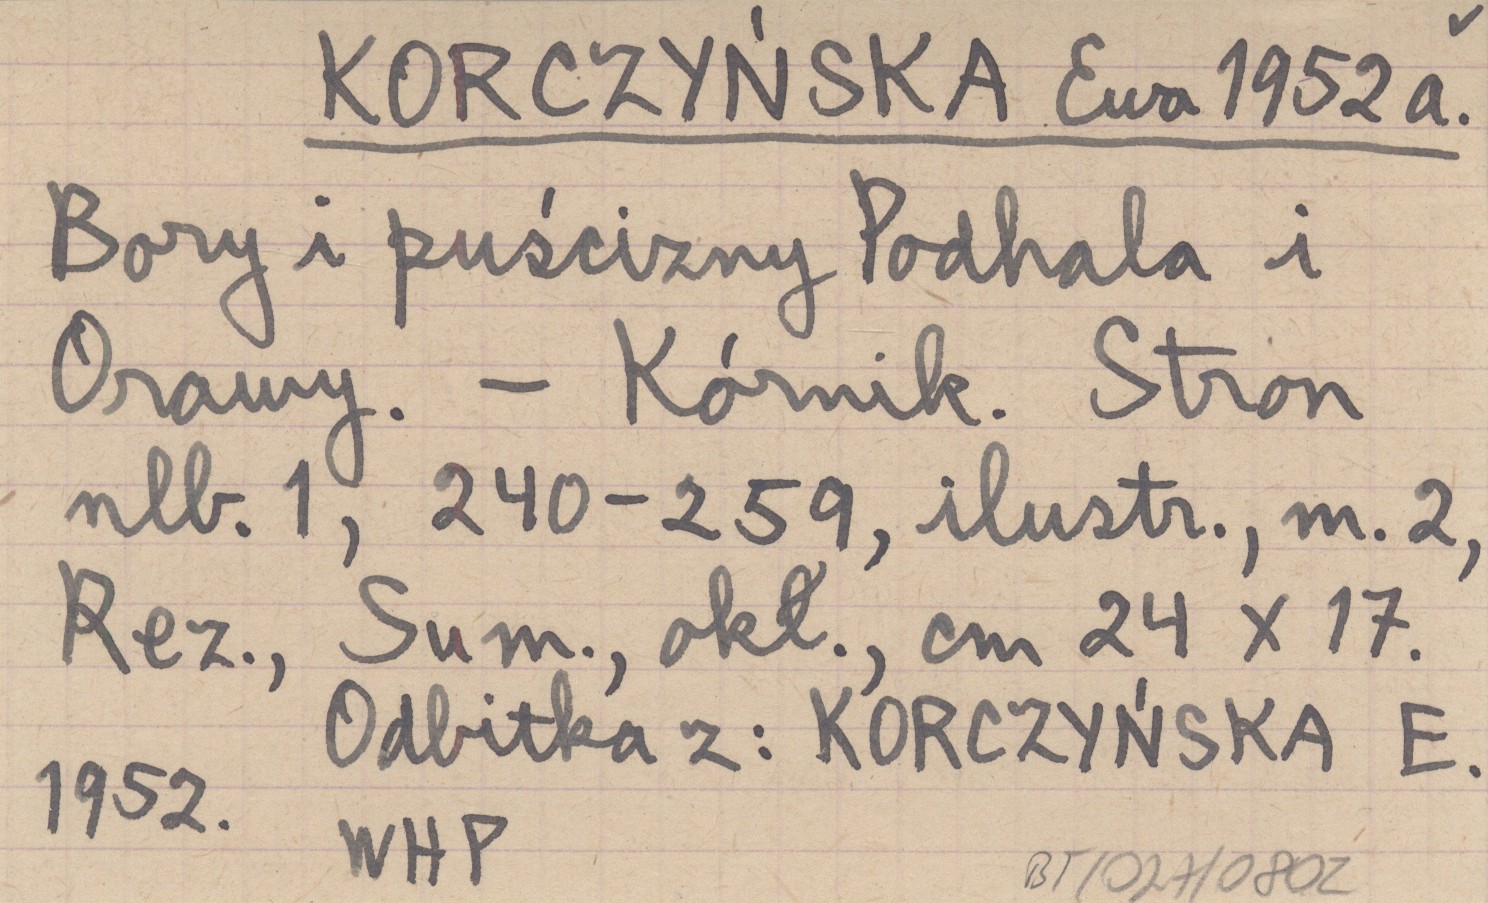 KORCZYŃSKA Ewa 1952 a.
Bory i puścizny Podhala i
Orawy. – Kórnik. Stron
nlb. 1, 240-259, ilustr., m. 2,
Rez., Sum., okł., cm 24 x 17.
Odbitka z: KORCZYŃSKA E.
1952.
WHP
BT/027/0802